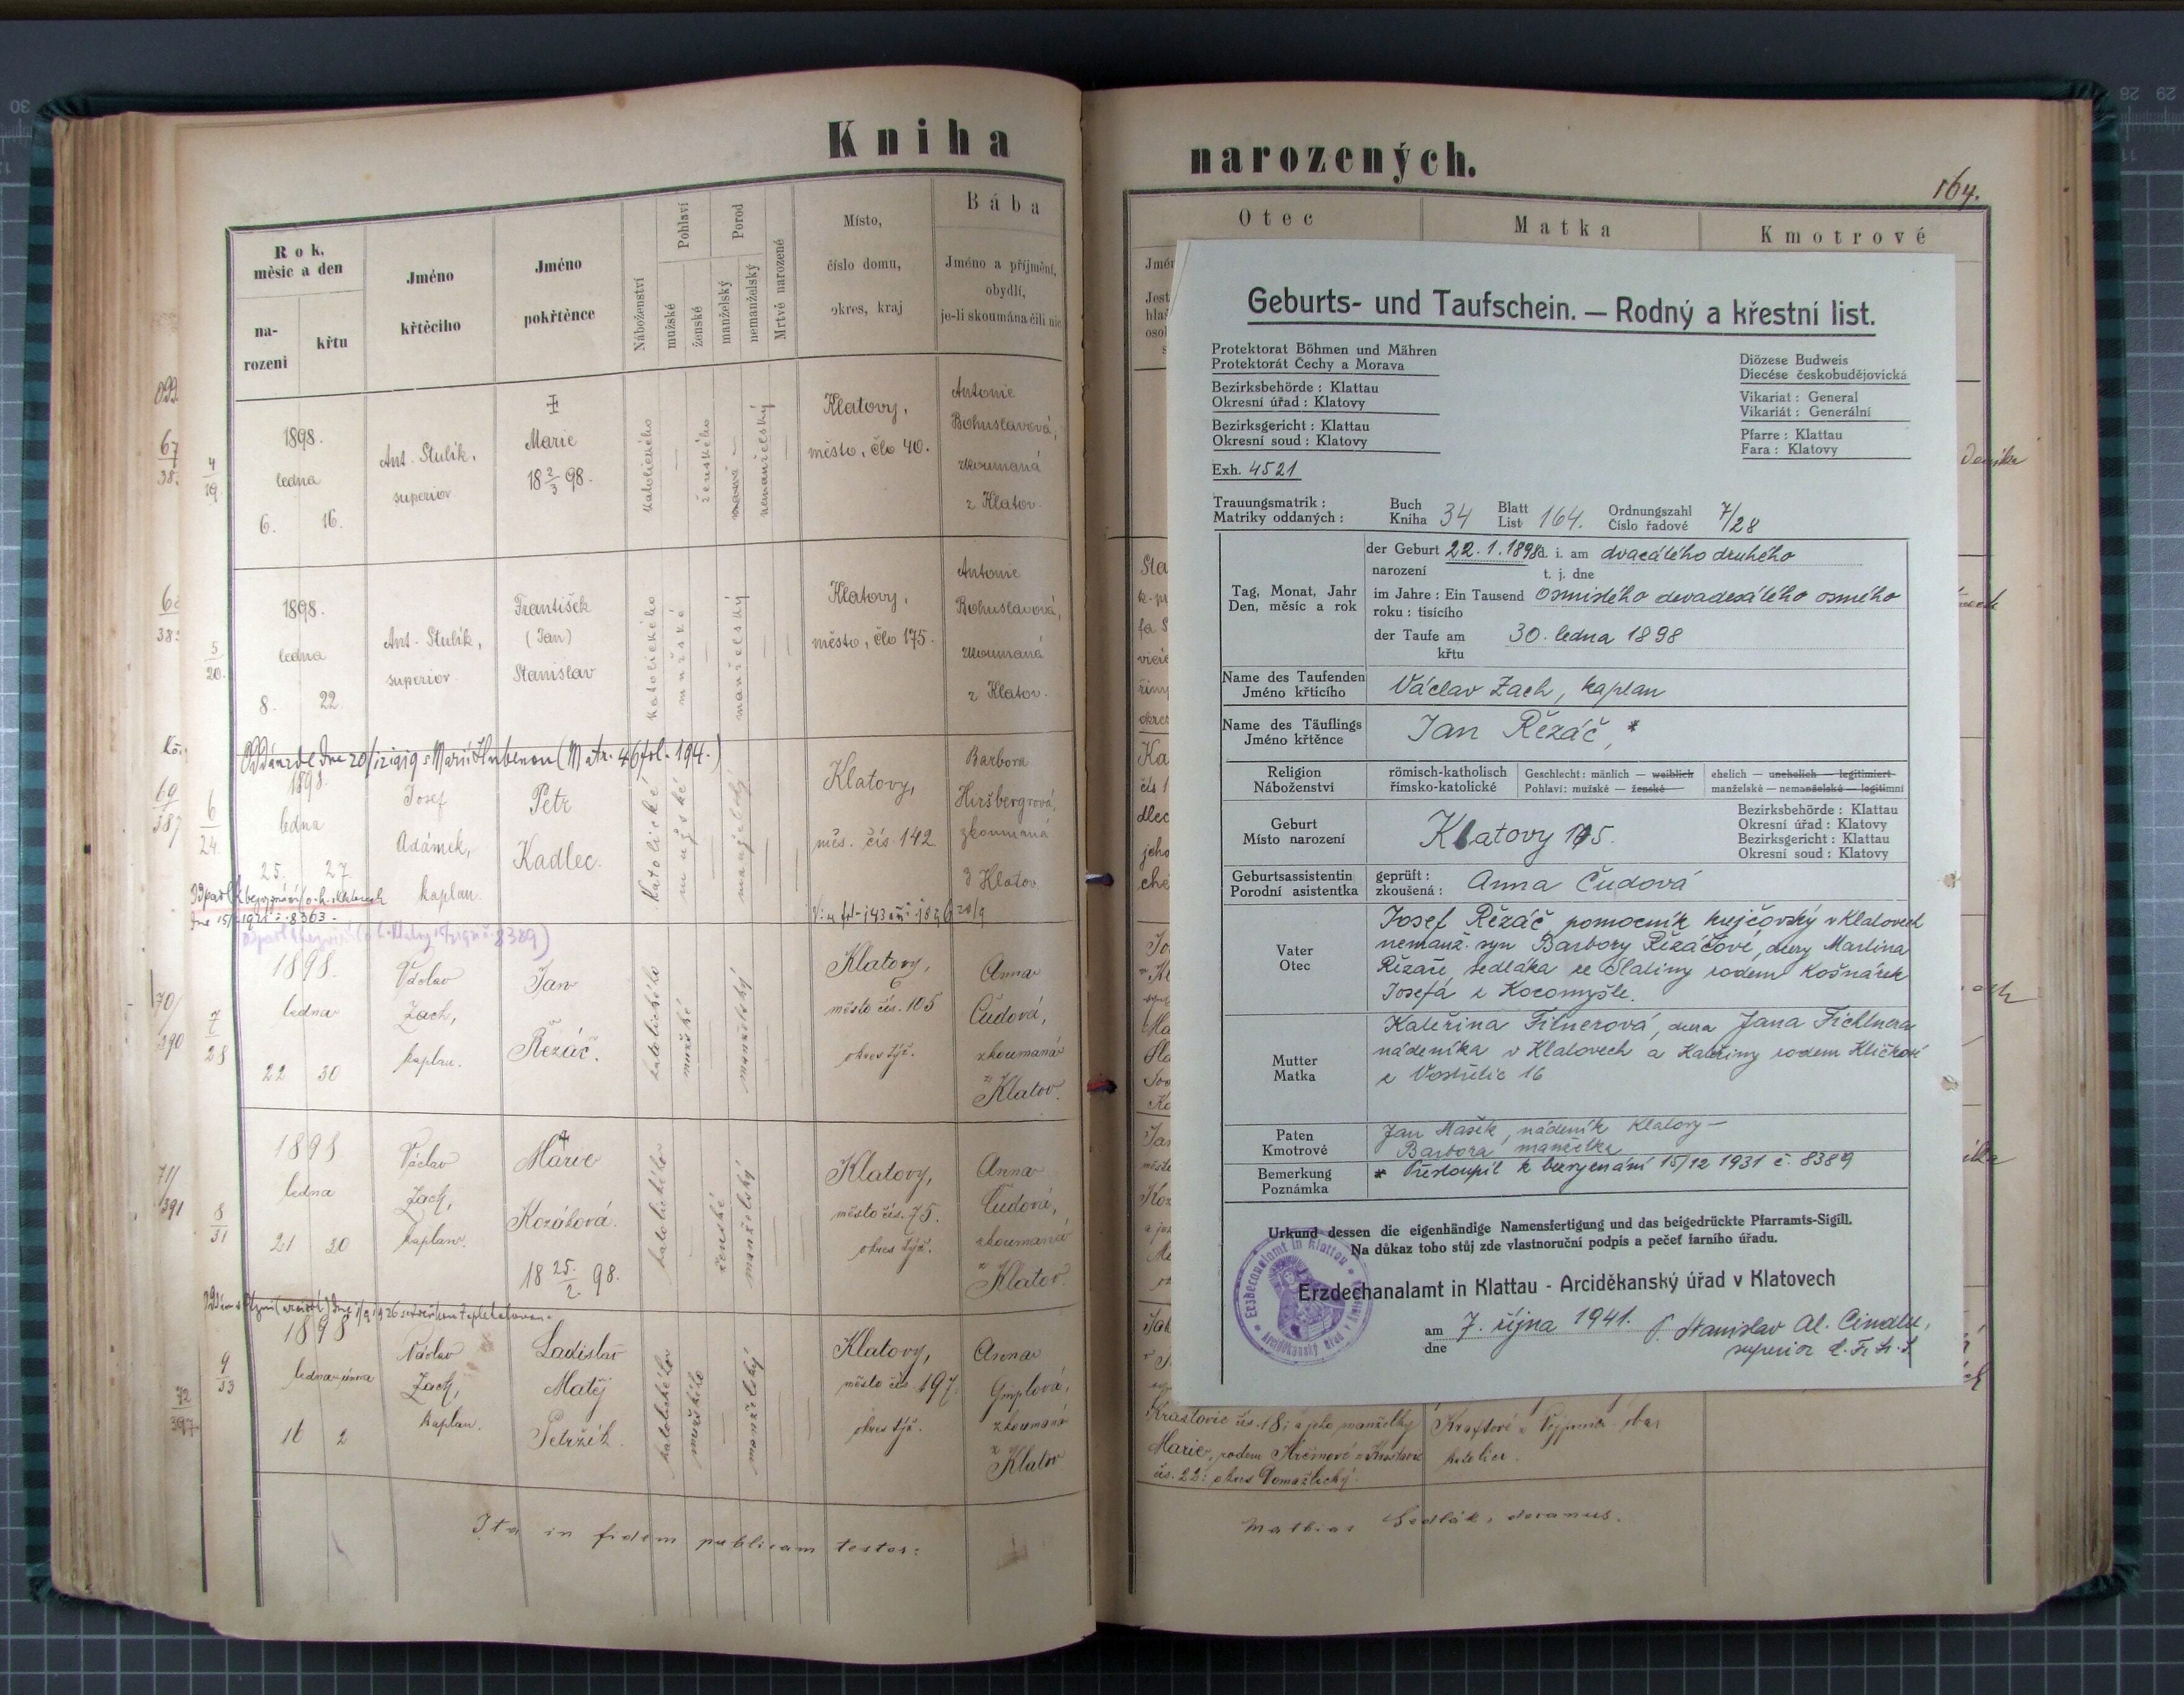 Kniha
narozených.
164.
Rok,
měsic a den
na-
rozeni
křtu
Jméno
křtěcího
Jméno
pokřtěnce
Náboženství
Pohlaví
mužské
ženské
Porod
manželský
nemanželský
Mrtvě narozené
Místo,
číslo domu,
okres, kraj
Bába
Jméno a příjmění,
obydlí,
je-li skoumána čili nic
Otec
Matka
Kmotrové
67
38.
4
19.
1898.
ledna
6. 16.
Ant. Stulík,
superior
Marie
18 2/3 98.
katolického
ženského
nemanželský
Klatovy,
město, člo 40.
Antonie
Bohuslavová,
zkoumaná
z Klatov.
5
20.
1898.
ledna
8. 22.
Ant. Stulík,
superior
František
(Jan)
Stanislav
katolického
mužské
manželský
Klatovy,
město, člo 175.
Antonie
Bohuslavová,
zkoumaná
z Klatov.
69
387
6
24.
1898
ledna
25. 27.
Josef
Adámek,
kaplan.
Petr
Kadlec.
katolické
mužské
manželský
Klatovy,
měs. čís. 142
Barbora
Hiršbergrová,
zkoumaná
z Klatov
70/
390
7
28
1898.
ledna
22 30
Václav
Zach,
kaplan.
Jan
Řezáč.
katolického
mužské
manželský
Klatovy,
město čís. 105
okres týž.
Anna
Čudová,
zkoumaná
z
Klatov.
71/
391
8
31
1898
ledna
21 30
Václav
Zach,
kaplan.
Marie
Kozáková.
18 25./2. 98.
katolického
ženské
manželský
Klatovy,
město čís. 75.
okres týž.
Anna
Čudová,
zkoumaná
z
Klatov.
72
397
9
33
1898
ledna února
16 2
Václav
Zach,
kaplan.
Ladislav
Matěj
Petržík.
katolického
mužského
manželský
Klatovy,
město čís. 197.
okres týž.
Anna
Gruplová,
zkoumaná
z
Klatov
Ita in fidem publicam testor:
Geburts- und Taufschein. — Rodný a křestní list.
Protektorat Böhmen und Mähren
Protektorát Čechy a Morava
Bezirksbehörde : Klattau
Okresní úřad : Klatovy
Bezirksgericht : Klattau
Okresní soud : Klatovy
Exh. 4521
Diözese Budweis
Diecése českobudějovická
Vikariat : General
Vikariát : Generální
Pfarre : Klattau
Fara : Klatovy
Trauungsmatrik :
Matriky oddaných :
Buch
Kniha 34
Blatt
List 164.
Ordnungszahl
Číslo řadové 7/28
Tag, Monat, Jahr
Den, měsíc a rok
der Geburt 22.1.1898 d. i. am dvacátého druhého
narození t. j. dne
im Jahre : Ein Tausend osmistého devadesátého osmého
roku : tisícího
der Taufe am 30. ledna 1898
křtu
Name des Taufenden
Jméno křtícího
Václav Zach, kaplan
Name des Täuflings
Jméno křtěnce
Jan Řezáč, *
Religion
Náboženství
römisch-katholisch
římsko-katolické
Geschlecht : mänlich — weiblich
Pohlaví : mužské — ženské
ehelich — unehelich — legitimiert
manželské — nemanželské — legitimní
Geburt
Místo narození
Klatovy 105.
Bezirksbehörde : Klattau
Okresní úřad : Klatovy
Bezirksgericht : Klattau
Okresní soud : Klatovy
Geburtsassistentin
Porodní asistentka
geprüft :
zkoušená :
Anna Čudová
Vater
Otec
Josef Řezáč pomocník krejčovský v Klatovech
nemanž. syn Barbory Řezáčové, dcery Martina
Řezáče, sedláka ze Slatiny rodem Košnářek
Josefa z Kocomyšle.
Mutter
Matka
Kateřina Fitnerová, dcera Jana Fichtnera
nádeníka v Klatovech a Kateřiny rodem Kličkové
z Vostřetic 16
Paten
Kmotrové
Jan Mašek, nádeník Klatovy —
Barbora manželka
Bemerkung
Poznámka
* Přestoupil k bezvyznání 15/12 1931 č. 8389
Urkund dessen die eigenhändige Namensfertigung und das beigedrückte Pfarramts-Sigill.
Na důkaz toho stůj zde vlastnoruční podpis a pečeť farního úřadu.
Erzdechanalamt in Klattau - Arciděkanský úřad v Klatovech
am
dne 7. října 1941.
P. Stanislav Al.
superior
Krastovic čís. 18; a jeho manželky
Marie, rodem
čís. 22: okres Domažlický.
Mathias Sedlák, decanus.